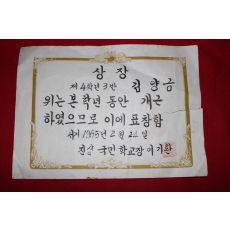 상장
제4학년 3반 김향금
위는 본 학년 동안 개근
하였으므로 이에 표창함
서기 1965년 2월 24일
국민학교장 이기환